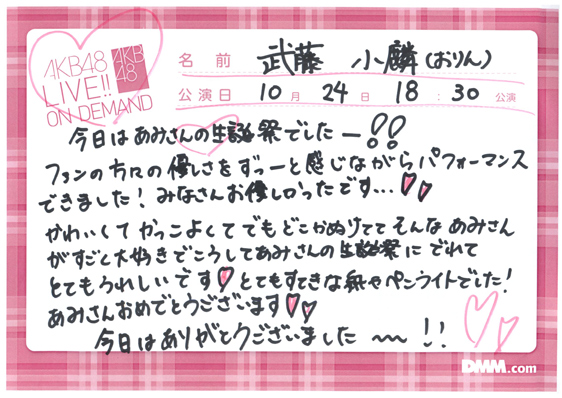 AKB48
LIVE!!
ON DEMAND
AKB
48
名前 武藤 小麟(おりん)
公演日 10月24日 18:30公演
今日はあみさんの生誕祭でしたー!!
ファンの方々の優しさをずっーと感じながらパフォーマンス
できました!みなさんお優しかったです...
かわいくてかっこよくてでもどこかぬけてて そんなあみさん
がすごく大好きでこうしてあみさんの生誕祭にでれて
とてもうれしいです とてもすてきな紙やペンライトでした!
あみさんおめでとうございます
今日はありがとうございました〜!!
DMM.com